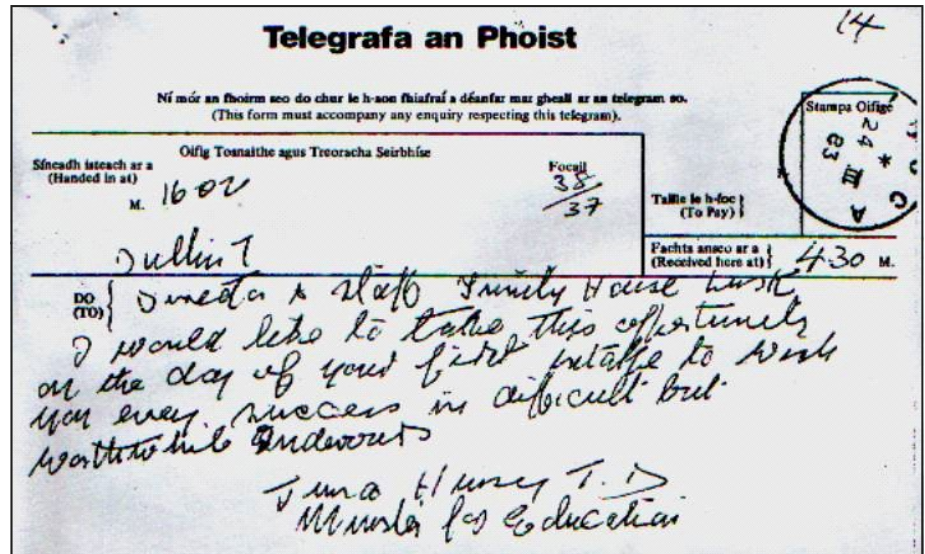 14
Telegrafa an Phoist
Ní mór an fhoirm seo do chur le h-aon fhiafraí a déanfar mar gheall ar an telegram so.
(This form must accompany any enquiry respecting this telegram).
Stampa Oifige
24 III 83
Síneadh isteach ar a
(Handed in at)
M. 1602
Oifig Tosnaithe agus Treoracha Seirbhíse
Focail
38/37
Taille le h-íoc
(To Pay)
Dublin T
Fachta anseo ar a
(Received here at) 4.30 M.
DO
(TO)
Director & Staff Trinity House Lusk
I would like to take this opportunity
on the day of your first intake to wish
you every success in difficult but
worthwhile endevours
Gemma Hussey T.D
Minister for Education